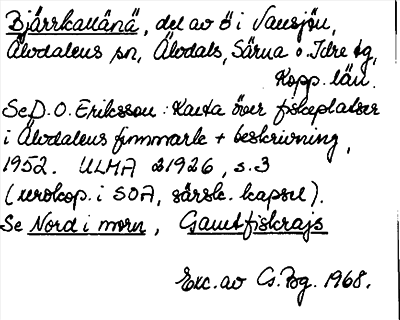 Bjärrkallänä, del av ö i Vansjön,
Älvdalens sn, Älvdals, Särna o. Idre tg,
Kopp. län.
Se D. O. Eriksson: Karta över fiskeplatser
i Älvdalens finnmark + beskrivning,
1952. ULMA 21926, s.3
(xerokop. i SOA, särsk. kapsel).
Se Nord i morn, Gamtfiskrajs
Exc. av Cs. Bg. 1968.